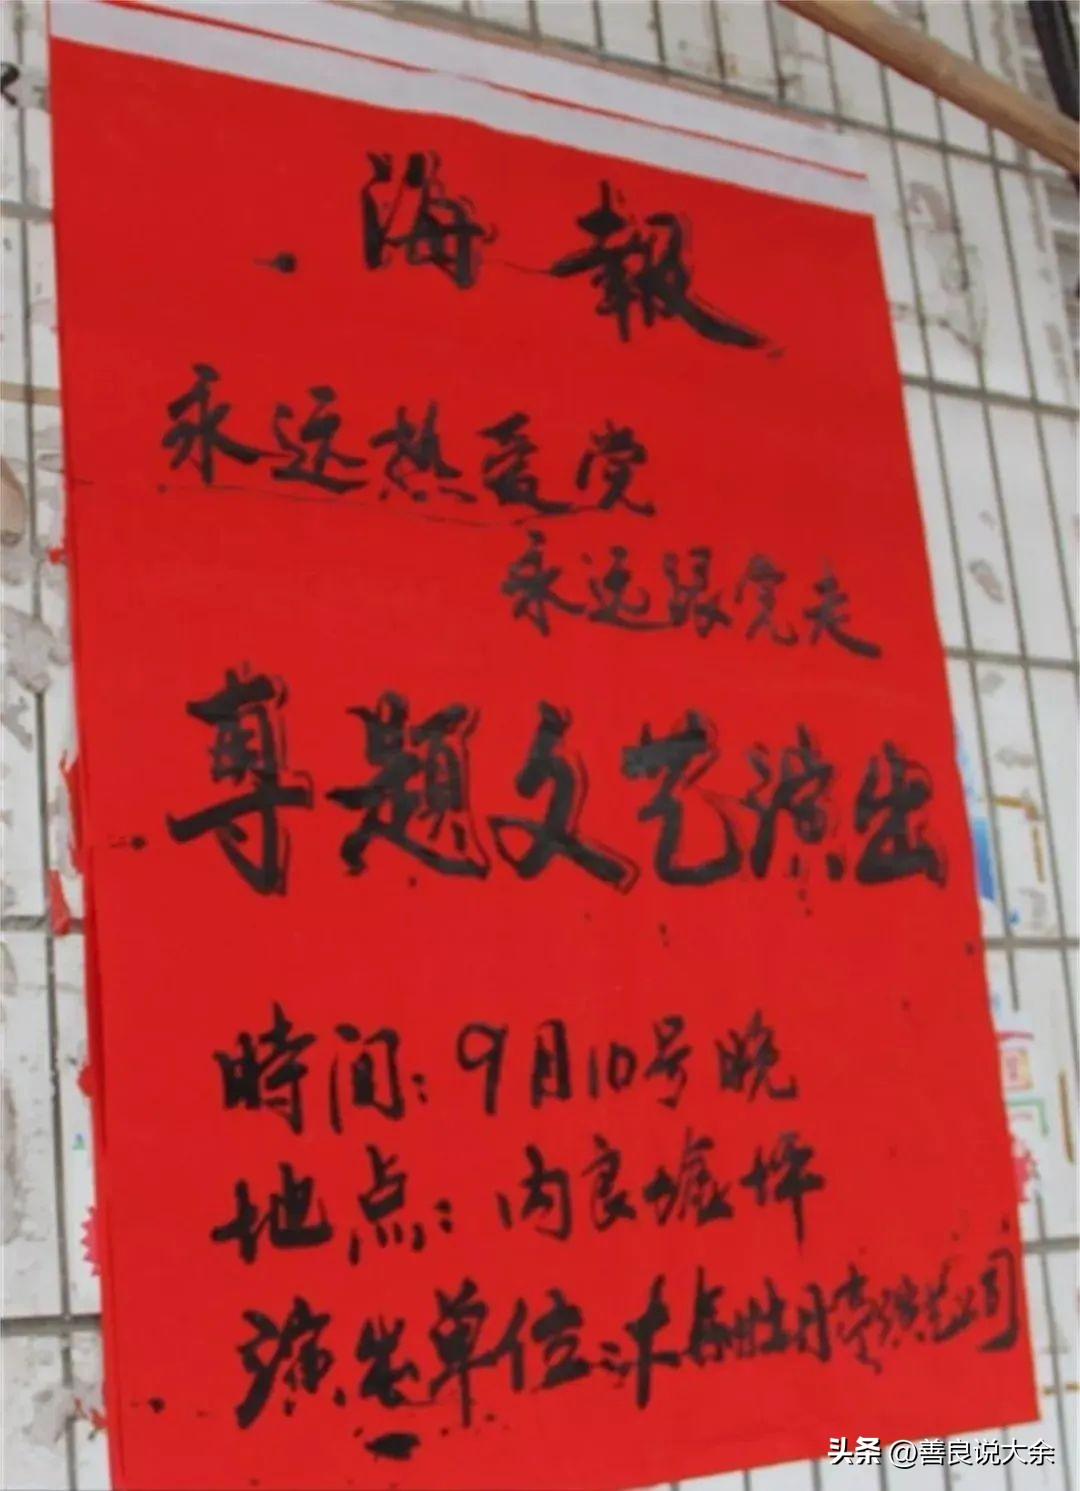 海報
永远热爱党
永远跟党走
專题文艺演出
時间:9月10号晚
地点:内良墟坪
演出单位:大余 演艺公司
头条 @善良说大余